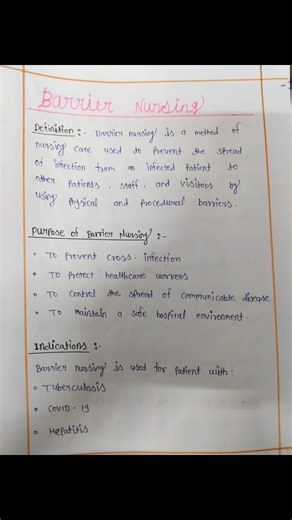 Barrier Nursing
Definition :- Barrier nursing is a method of
nursing care used to prevent the spread
of infection from an infected patient to
other patients, staff, and visitors by
using physical and procedural barriers.
Purpose of Barrier Nursing :-
• To prevent cross-infection
• To protect healthcare workers
• To control the spread of communicable disease
• To maintain a safe hospital environment.
Indications :-
Barrier nursing is used for patient with :
• Tuberculosis
• COVID-19
• Hepatitis